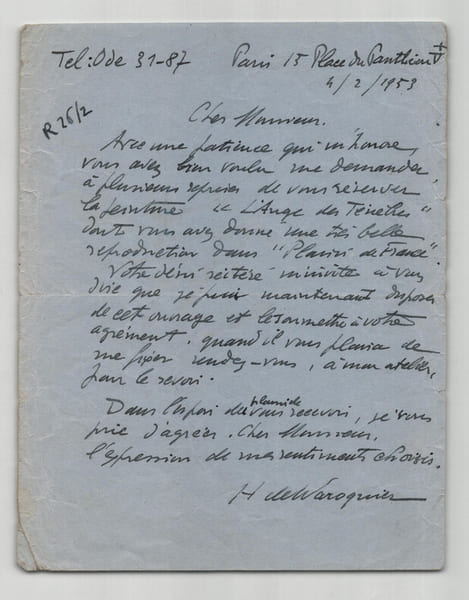 Tel: Ode 31-87 Paris 15 Place du Panthéon V
4/2/1953
R 26/2
Cher Monsieur.
Avec une patience qui m'honore,
vous avez bien voulu me demander,
à plusieurs reprises de vous réserver
la peinture "L'Ange des Ténèbres"
dont vous avez donné une très belle
reproduction dans "Plaisir de France"
Votre désir réitéré m'invite à vous
dire que je puis maintenant disposer
de cet ouvrage et le soumettre à votre
agrément. quand il vous plaira de
me fixer rendez-vous, à mon atelier,
pour le revoir.
Dans l'espoir du plaisir de vous recevoir, je vous
prie d'agréer. Cher Monsieur.
l'expression de mes sentiments choisis.
H de Waroquier